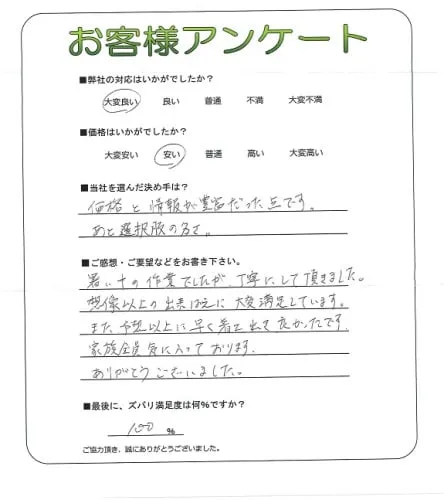 お客様アンケート
■弊社の対応はいかがでしたか?
大変良い 良い 普通 不満 大変不満
■価格はいかがでしたか?
大変安い 安い 普通 高い 大変高い
■当社を選んだ決め手は?
価格と情報が豊富だった点です。
あと選択肢の多さ。
■ご感想・ご要望などをお書き下さい。
暑い中の作業でしたが、丁寧にして頂きました。
想像以上の出来ばえに大変満足しています。
また、予想以上に早く着工出来て良かったです。
家族全員気に入っております。
ありがとうございました。
■最後に、ズバリ満足度は何%ですか?
100 %
ご協力頂き、誠にありがとうございました。